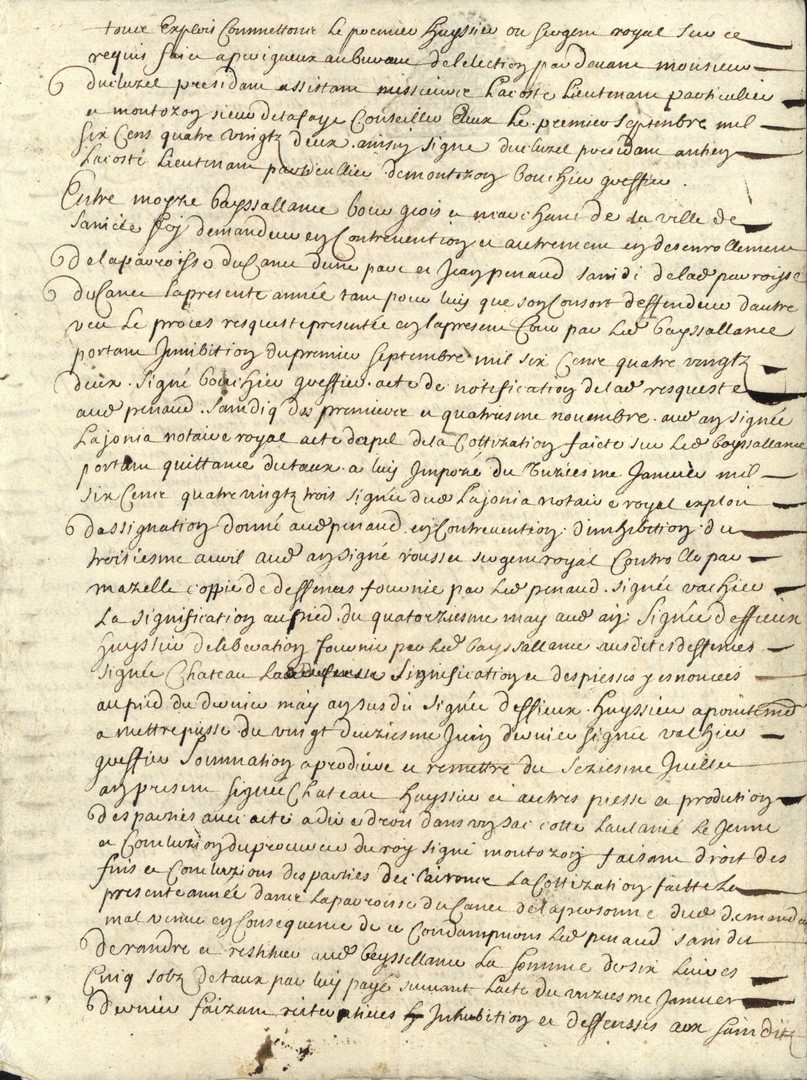 toute Exploi Commettons Le premier huyssier ou sergent royal sur ce
requis faict a perigueux au bureau de lelection par devant monsieur
duluzel presidant assistans messieurs Lacoste Lieutenant particullier
et montozon sieur de lafaye Conseiller Eleux Le premier septembre mil
six Cens quatre vingtz deux ainsy signé duluzel president
Lacoste Lieutenant particullier demontozon bouchier greffier .
Entre moyze bayssallance bourgeois et marchant de la ville de
demandeur en Contrevention et autrement en desenrollement
de la parroisse duCanet dune part et Jean penaud sandi de lade parroisse
duCanet la presente année tant pour luy que son Consort deffendeur dautre
veu Le proces resqueste presentée en la present Cour par Led bayssallance
portant Jnnibition du premier septembre mil six Cent quatre vingtz
deux . Signé bouchier greffier . acte de notification de lade resqueste
aud penaud . sandiq des premier et quatriesme novembre . aud an signée
Lajonia notaire royal acte dapel de la Cottization faicte sur Led bayssallance
portant quittance du taux . a luy Jmpozé du unziesme Janvier mil
six Cent quatre vingtz trois signée dud Lajonia notaire royal exploi
dassignation donné aud penaud en Contrevention . dinhibition du
troisiesme avril aud an signé rousse sergent royal Controllé par
mazelle coppie de deffences fournie par Led penaud . signée vachier
La signification au pied . du quatorziesme may aud an . signée deffieux
huyssier deliberation fournie par Led bayssallance ausdites deffences
signée Chateau signification et des piesses y esnoncés
au pied du dernier may an susdit signée deffieux . huyssier apointemt
a mettre pièsse . du vingt deuziesme Juin dernier signée vachier
greffier sommation a prodiure et remettre du seziesme Juillet
an present signée Chateau huyssier et autres piesse et prodution
des parties avec acte a dire droit dans un sac cotté Laulanié Le Jeune
et Concluzion du procureur du roy signé montozon faisant droit des
fins et Concluzions des parties declairons La Cottization faitte la
presente année dans La parroisse du Canet de la personne dud demandeur
mal venue en Consequence de ce Condampnons Led penaud sandit
de randre et restituer aud beyssellance La somme de six Livres
Cinq solz de taux par luy payé suivant Lacte du unziesme Janvier
dernier faizant Inhibition et deffensses aux sandits